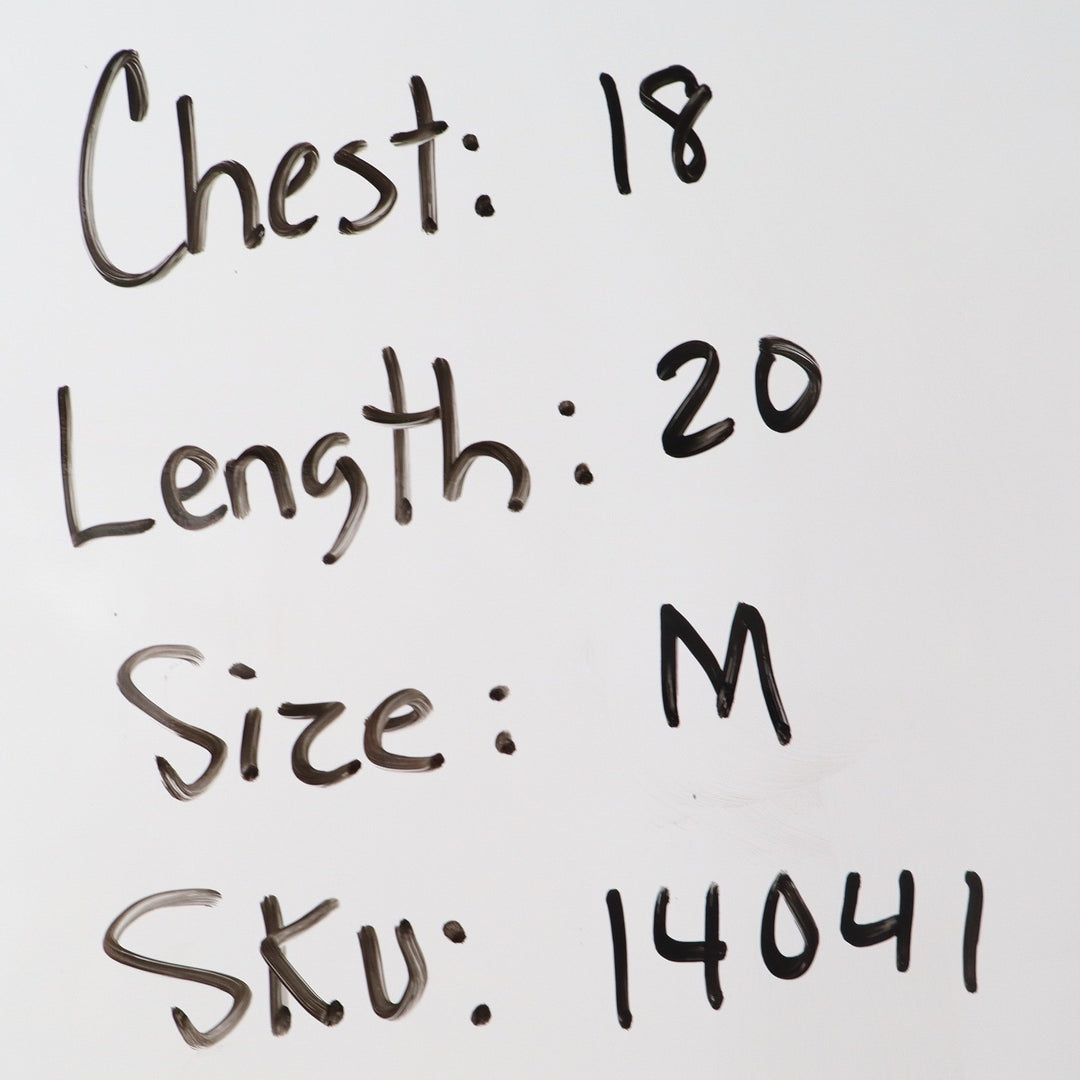 Chest: 18
Length: 20
Size: M
Sku: 14041